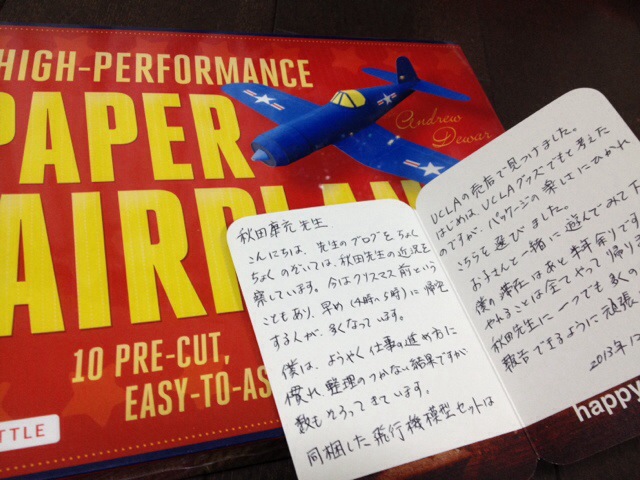 HIGH-PERFORMANCE
PAPER
AIRPLAN
Andrew
Dewar
10 PRE-CUT,
EASY-TO-AS
TTLE
秋田 先生
こんにちは、先生のブログをちょく
ちょくのぞいては、秋田先生の近況を
察しています。今はクリスマス前という
こともあり、早め(4時、5時)に帰宅
する人が、多くなっています。
僕は、ようやく仕事の進め方に
慣れ、整理のつかない結果ですが
数もそろってきています。
同梱した飛行機模型セットは
UCLAの売店で見つけました。
はじめは、UCLAグッズでもと考えた
のですが、パッケージの楽しさにひかれ
こちらを選びました。
お子さんと一緒に遊んでみて下
僕の滞在はあと半年余りです
やれることは全てやって帰り
秋田先生に一つでも多くの
報告できるように頑張
2013年12
happy